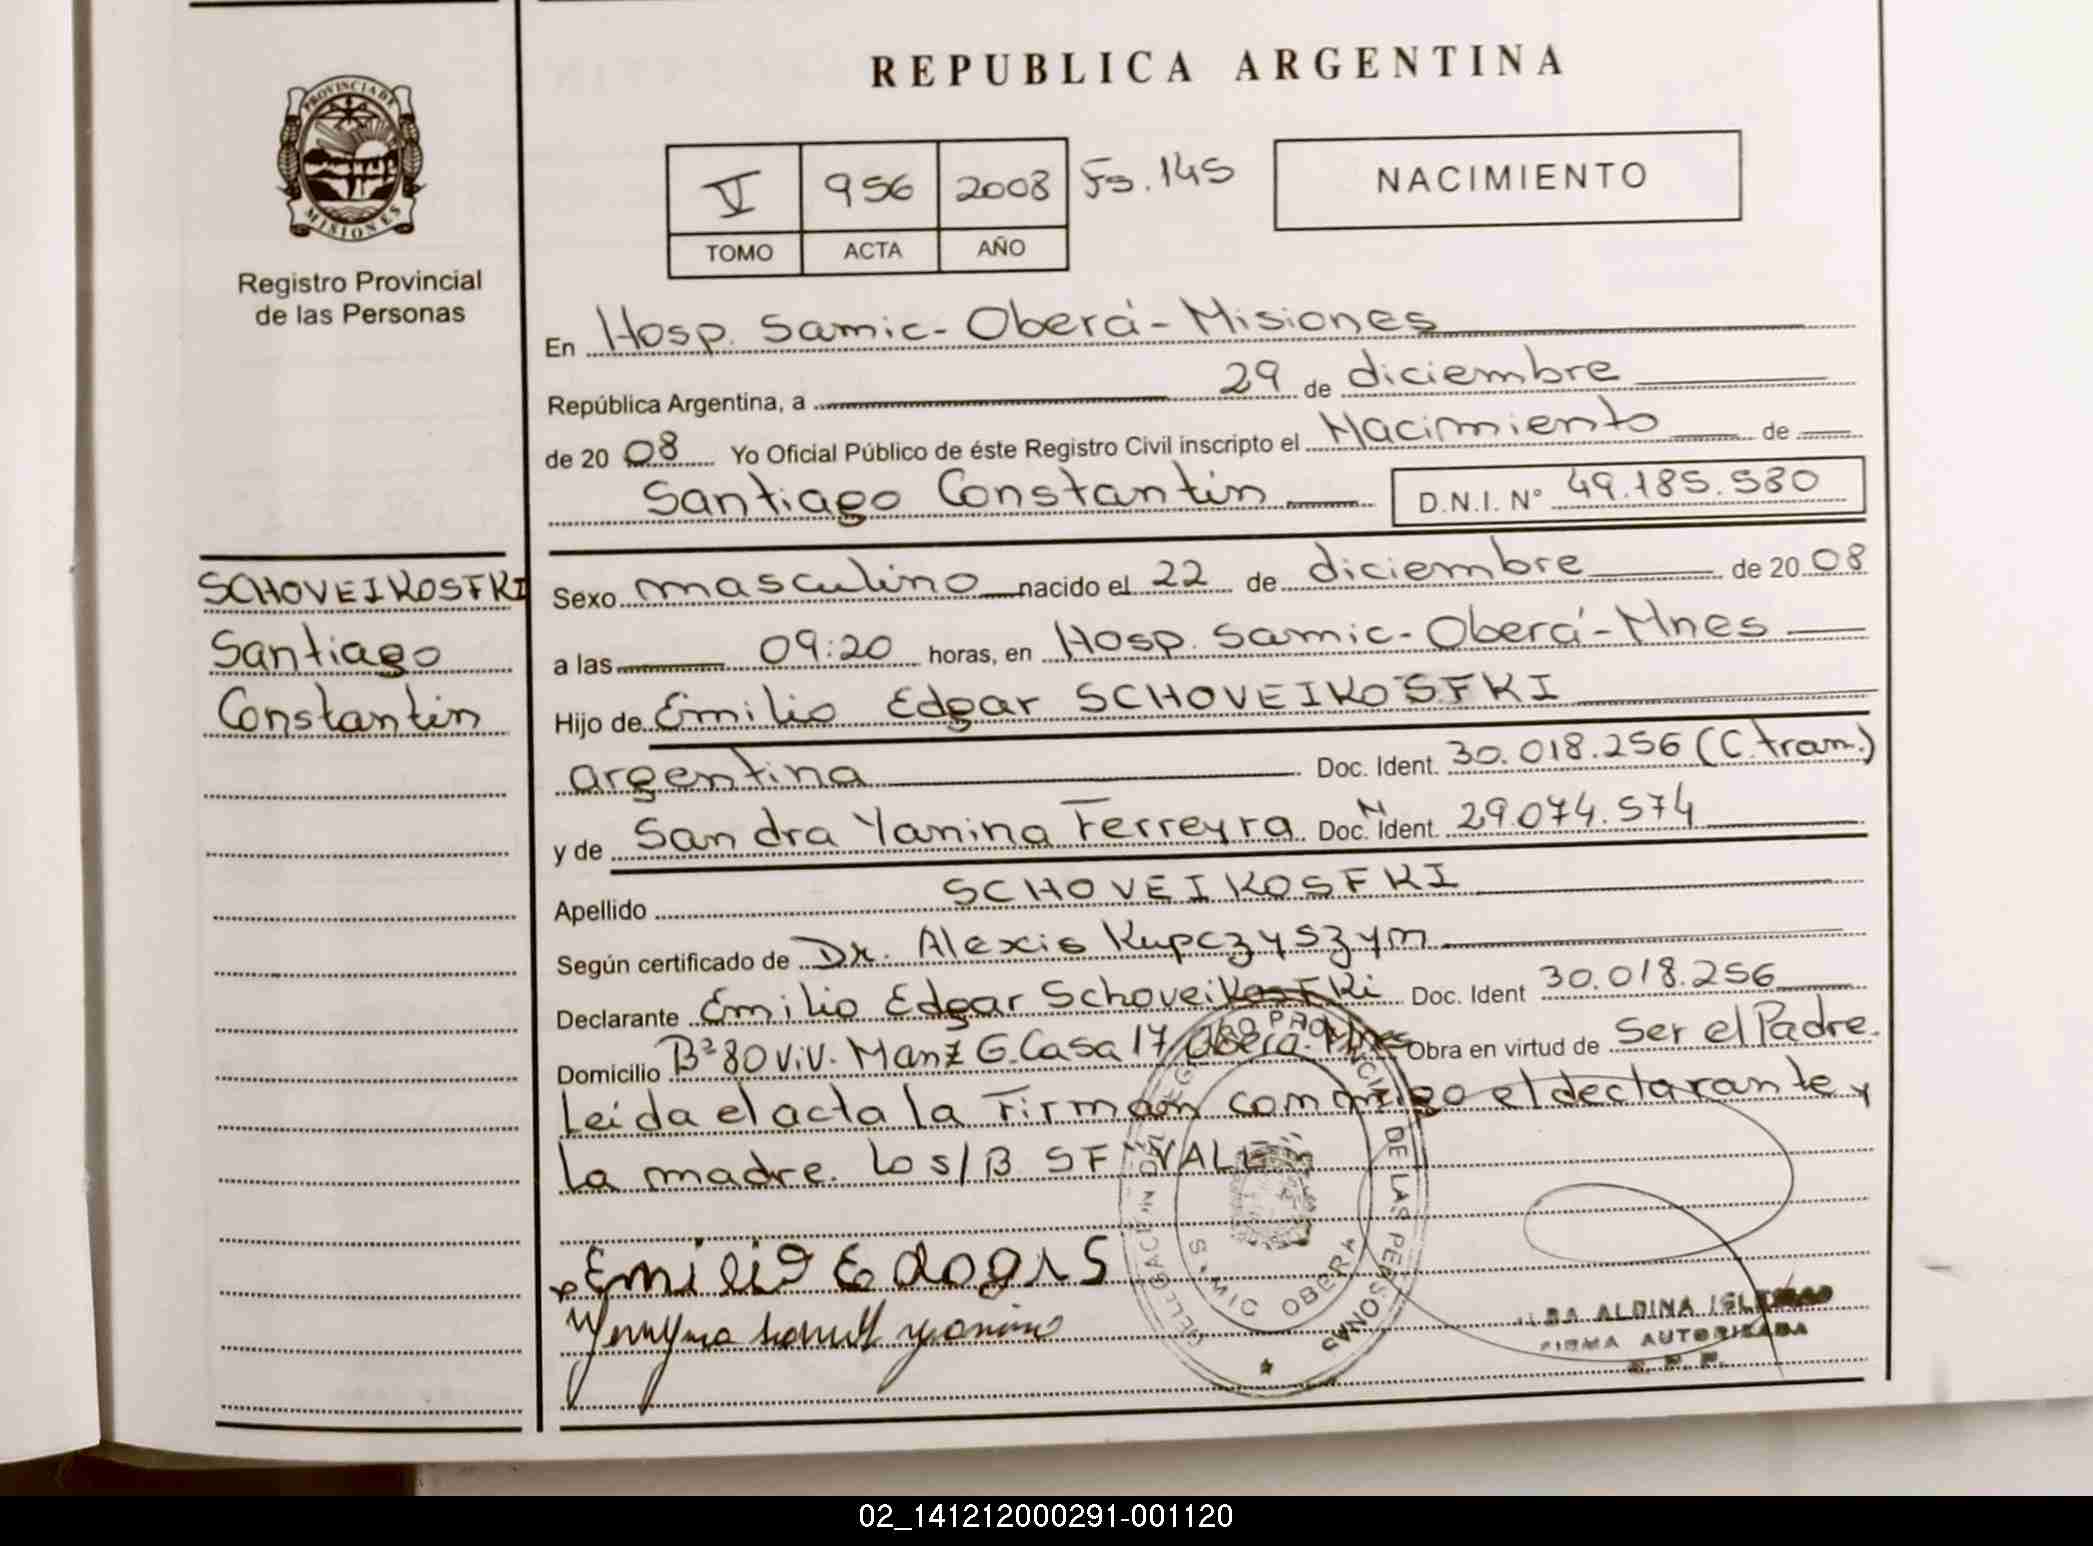 REPUBLICA ARGENTINA
PROVINCIA DE
MISIONES
Registro Provincial
de las Personas
V 956 2008 Fs. 145
TOMO ACTA AÑO
NACIMIENTO
En Hosp. Samic - Oberá - Misiones
República Argentina, a 29 de diciembre
de 20 08 Yo Oficial Público de éste Registro Civil inscripto el Nacimiento de
Santiago Constantin D.N.I. N° 49.185.580
SCHOVEIKOSFKI
Santiago
Constantin
Sexo masculino nacido el 22 de diciembre de 20 08
a las 09:20 horas, en Hosp. Samic - Oberá - Mnes
Hijo de Emilio Edgar SCHOVEIKOSFKI
argentina Doc. Ident. 30.018.256 (C. tram.)
y de Sandra Yanina Ferreyra Doc. Ident. N 29.074.574
Apellido SCHOVEIKOSFKI
Según certificado de Dr. Alexis Kupczyszym
Declarante Emilio Edgar Schoveikosfki Doc. Ident 30.018.256
Domicilio B° 80 Viv. Manz G. Casa 17 Oberá - Mnes Obra en virtud de Ser el Padre.
Leída el acta la firman conmigo el declarante y
la madre. Lo s/B SF VALE
Emilio Edgar S
Yanina
DELEGACION REGISTRO PROVINCIAL DE LAS PERSONAS
SAMIC OBERA
ALDINA
FIRMA AUTORIZADA
R. P. P.
02_141212000291-001120